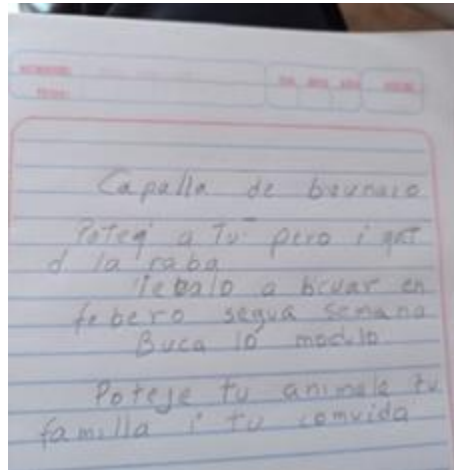 NOMBRE
Capalla de bacunacio
Poteg a Tu pero i gat
d la raba
lebalo a bcuar en
febero segua semana
Buca lo modulo
Poteje tu animale tu
familla i tu comuida